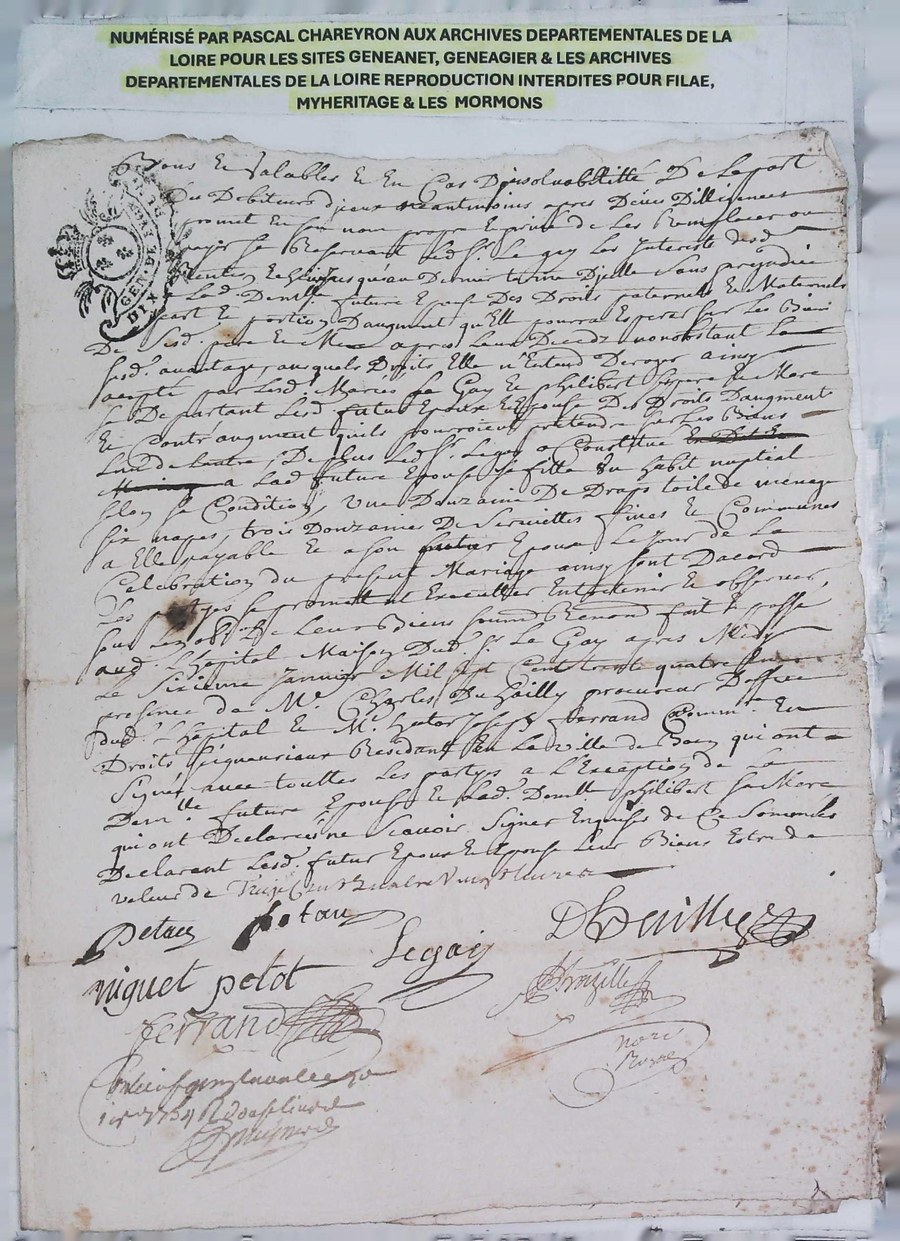 NUMÉRISÉ PAR PASCAL CHAREYRON AUX ARCHIVES DEPARTEMENTALES DE LA
LOIRE POUR LES SITES GENEANET, GENEAGIER & LES ARCHIVES
DEPARTEMENTALES DE LA LOIRE REPRODUCTION INTERDITES POUR FILAE,
MYHERITAGE & LES MORMONS
GEN. DE
DIX
Bons Et Valables Et En Cas Dinsolvabilitté De La part
Des Debiteurs Diceux neantmoins apres Deües Dilligences
promet En son nom propre Et privé de Les Remplacer ou
payer se Reservant Led. Sr. Le gay Les Interets desd
jusqu'au Dernier terme Sans prejudice
a Lad. Demlle future Epouse Des Droits paternels Et Maternels
part Et portion Daugment qu'Elle pourra Esperer sur Les Biens
De Sesd. pere Et Mere apres Leur Decedz nonobstant La
susd. avantage, ausquels Droits Elle n'Entend Deroger ainsy
acepté par Lesd. Mariés Le Gay Et philibert Ses pere Et Mere
se Departant Lesd. futur Epoux Et Epouse Des Droits Daugment
Et Contr'augment quils pourroient pretendre sur Les Biens
Lun de Lautre, De plus Led. Sr. Legay a Constitué
a Lad. future Epouse sa fille Un habit nuptial
selon sa Condition, Une Douzaine De Draps toile de menage
six napes, trois Douzaines De Serviettes fines Et Communes
a Elle payable Et a son futur Epoux Le jour de La
Celebration du present Mariage ainsy sont Dacord
Les partyes se promettant Executter Entretenir Et observer,
sous Les obl. De Leurs Biens soumis Renoncé fait Et passé
aud. L'hopital Maison Dud. Sr. Le Gay apres Midy
Le Sixieme Janvier Mil sept Cent trente quatre En
presence de Me. Charles Du hailly procureur Doffice
Dud. L'hopital Et Me. Joseph ferrand Commre. En
Droits seigneuriaux Residant En La ville de Boen qui ont
Signés avec touttes Les partyes a L'Exception de La
Demlle. future Epouse Et Lad. Demlle philibert sa Mere
qui ont Declarés ne Scavoir Signer Enquises de Ce Sommées
Declarant Lesd. futur Epoux Et Epouse Leur Biens Estre de
valeur de Cent quatre Vingt Livres
petau
Legay
DuHailly
viguet petot
ferrand
nore
Royal
1734